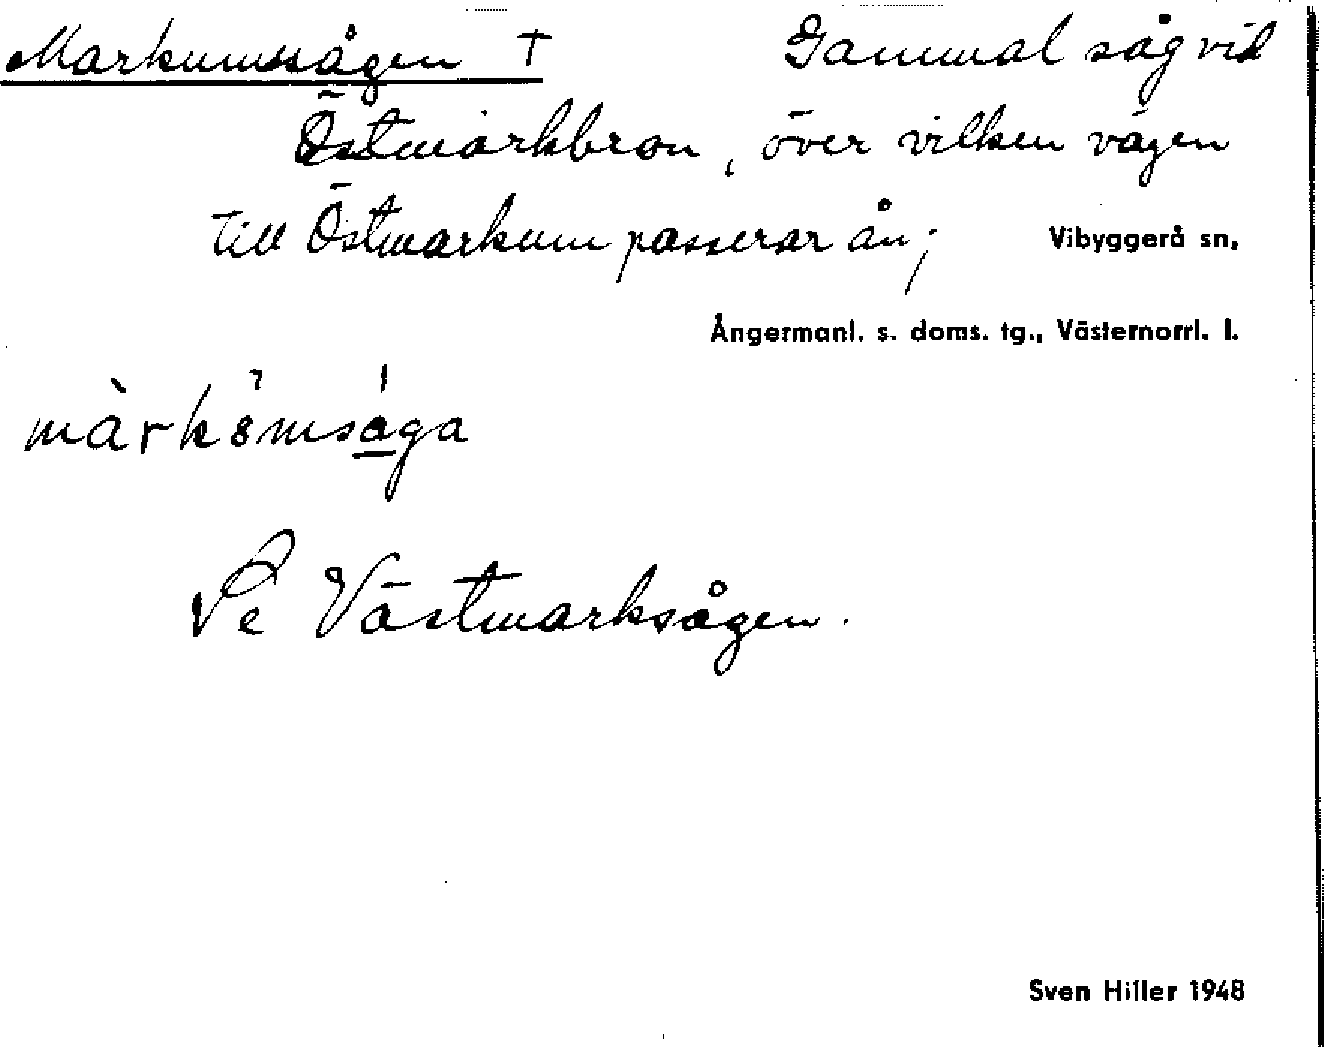 Markumssågen † Gammal såg vid
Östmarkbron, över vilken vägen
till Östmarkum passerar ån;
Vibyggerå sn,
Ångermanl. s. doms. tg., Västernorrl. l.
Se Västmarksågen.
Sven Hiller 1948